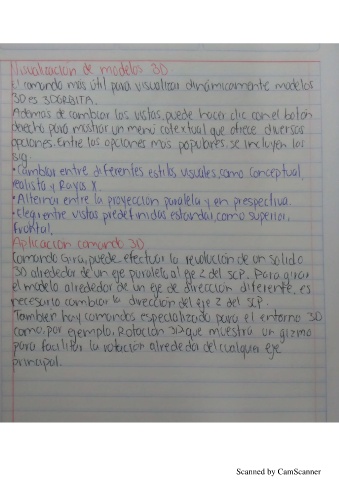 Visualizacion de modelos 3D
El comando más útil para visualizar dinámicamente modelos
3D es 3DORBITA.
Ademas de cambiar las vistas, puede hacer clic con el botón
derecho para mostrar un menú cotextual que ofrece diversos
opciones. Entre las opciones mas populares se incluyen las
sig.
• Cambiar entre diferentes estilos visuales, como Conceptual,
realista y Rayos X.
• Alternar entre la proyeccion paralela y en prespectiva.
• Elegi entre vistas predefinidas estandar, como superior,
frontal.
Aplicacion comando 3D
Comando Gira, puede efectuar la revolución de un solido
3D alrededor de un eje paralelo al eje Z del SCP. Para girar
el modelo alrededor de un eje de dirección diferente, es
necesario cambiar la dirección del eje Z del SCP.
Tambien hay comandos especializado para el entorno 3D
como, por ejemplo, Rotación 3D que muestra un gizmo
para facilitar la rotación alrededor del cualquier eje
principal.
Scanned by CamScanner